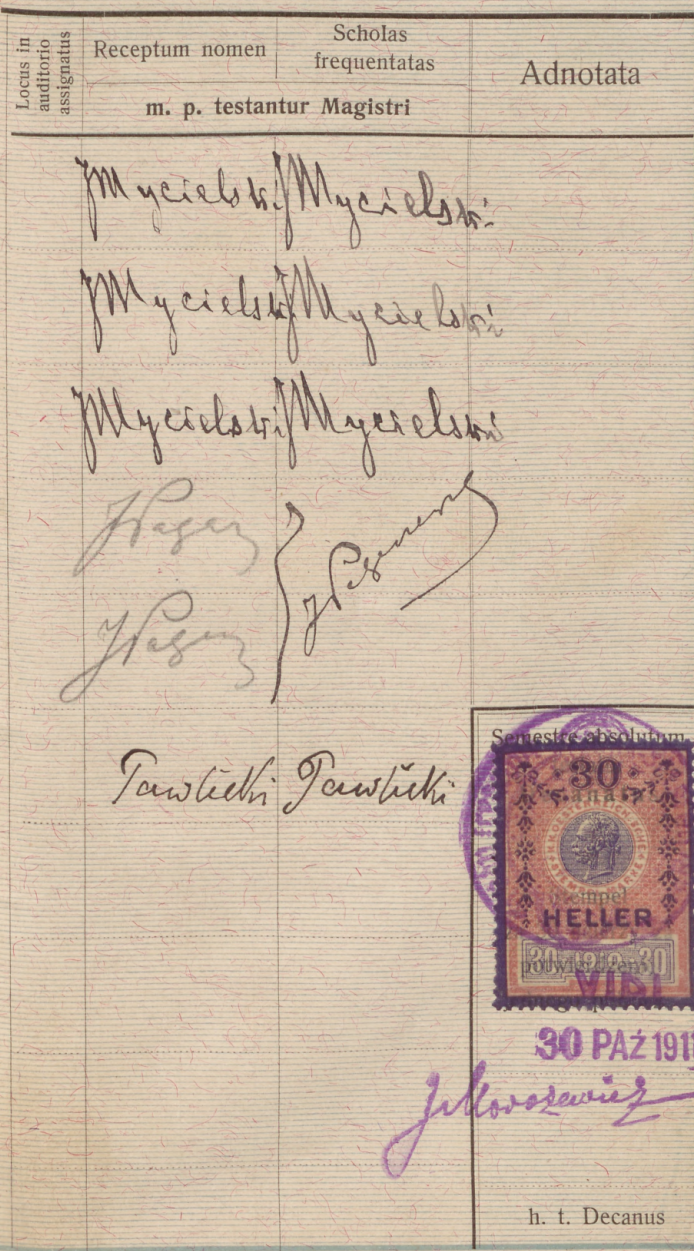 Locus in auditorio assignatus
Receptum nomen
Scholas frequentatas
Adnotata
m. p. testantur Magistri
JMycielski JMycielski
JMycielski JMycielski
JMycielski JMycielski
Pawlicki Pawlicki
Semestre absolutum
30
HELLER
30 1910 30
VIDI
30 PAŹ 1911
J. Morozewicz
h. t. Decanus